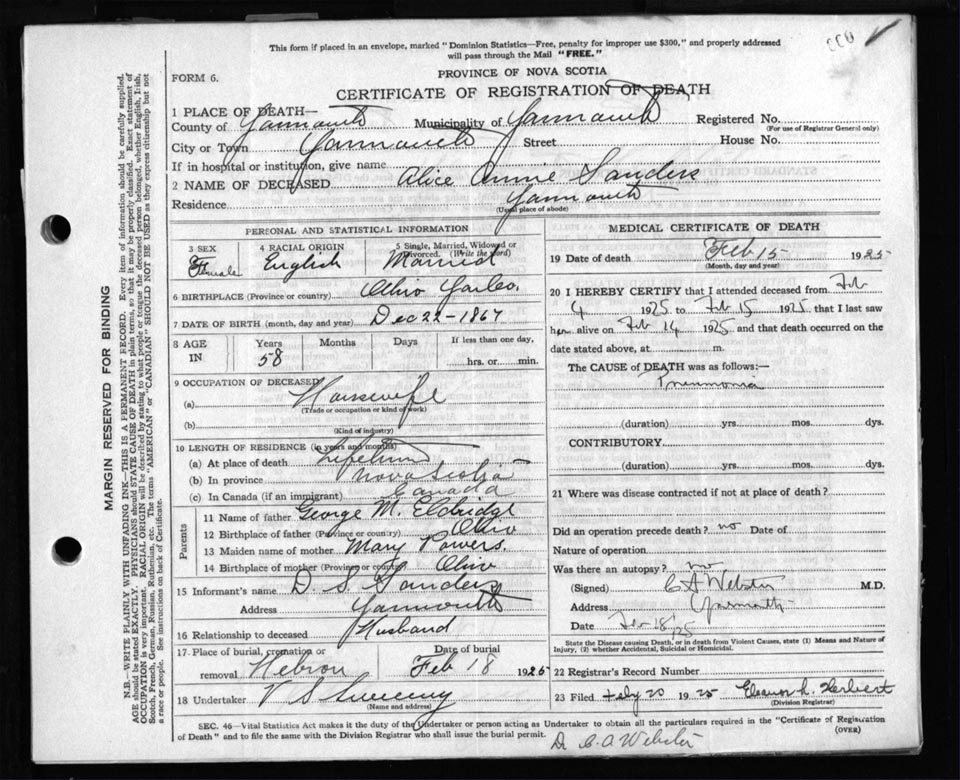 This form if placed in an envelope, marked "Dominion Statistics—Free, penalty for improper use $300," and properly addressed
will pass through the Mail "FREE."
FORM 6.
PROVINCE OF NOVA SCOTIA
CERTIFICATE OF REGISTRATION OF DEATH
1 PLACE OF DEATH—
County of Yarmouth Municipality of Yarmouth Registered No.
(For use of Registrar General only)
City or Town Yarmouth Street House No.
If in hospital or institution, give name
2 NAME OF DECEASED Alice Annie Sanders
Residence Yarmouth
(Usual place of abode)
PERSONAL AND STATISTICAL INFORMATION
3 SEX 4 RACIAL ORIGIN 5 Single, Married, Widowed or Divorced. (Write the word)
Female English Married
6 BIRTHPLACE (Province or country) Ohio Yar Co.
7 DATE OF BIRTH (month, day and year) Dec 22 - 1867
8 AGE IN Years Months Days If less than one day,
58 hrs. or min.
9 OCCUPATION OF DECEASED
(a) Housewife
(Trade or occupation or kind of work)
(b)
(Kind of industry)
10 LENGTH OF RESIDENCE (in years and months)
(a) At place of death Lifetime
(b) In province Nova Scotia
(c) In Canada (if an immigrant) Canada
Parents
11 Name of father George M. Eldridge
12 Birthplace of father (Province or country) Ohio
13 Maiden name of mother Mary Powers.
14 Birthplace of mother (Province or country) Ohio
15 Informant's name D. S. Sanders
Address Yarmouth
16 Relationship to deceased Husband
17 Place of burial, cremation or removal Hebron Date of burial Feb 18 1925
18 Undertaker V S Sweeny
(Name and address)
MEDICAL CERTIFICATE OF DEATH
19 Date of death Feb 15 1925
(Month, day and year)
20 I HEREBY CERTIFY that I attended deceased from Feb
1925 to Feb 15 1925 that I last saw
her alive on Feb 14 1925 and that death occurred on the
date stated above, at m.
The CAUSE OF DEATH was as follows:—
Pneumonia
(duration) yrs. mos. dys.
CONTRIBUTORY
(duration) yrs. mos. dys.
21 Where was disease contracted if not at place of death?
Did an operation precede death? no Date of
Nature of operation
Was there an autopsy? no
(Signed) C A Webster M.D.
Address Yarmouth
Date Feb 18, 25
State the Disease causing Death, or in death from Violent Causes, state (1) Means and Nature of
Injury, (2) whether Accidental, Suicidal or Homicidal.
22 Registrar's Record Number
23 Filed Feby 20 1925 Eleanor L. Herbert
(Division Registrar)
SEC. 46—Vital Statistics Act makes it the duty of the Undertaker or person acting as Undertaker to obtain all the particulars required in the "Certificate of Registration
of Death" and to file the same with the Division Registrar who shall issue the burial permit.
(OVER)
Dr C. A Webster
MARGIN RESERVED FOR BINDING
N.B.—WRITE PLAINLY WITH UNFADING INK—THIS IS A PERMANENT RECORD. Every item of information should be carefully supplied.
AGE should be stated EXACTLY. PHYSICIANS should STATE CAUSE OF DEATH in plain terms, so that it may be properly classified. Exact statement of
OCCUPATION is very important. RACIAL ORIGIN will be described by stating to what people or tongue the deceased person belonged, whether English, Irish,
Scotch, French, German, Russian, Ruthenian, etc. The terms "AMERICAN" or "CANADIAN" SHOULD NOT BE USED as they express citizenship but not
a race or people. See instructions on back of Certificate.